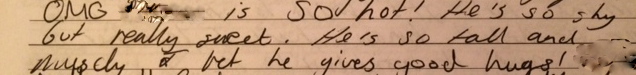 OMG is SO hot! He's so shy
but really sweet. He's so tall and
muscly & bet he gives good hugs!